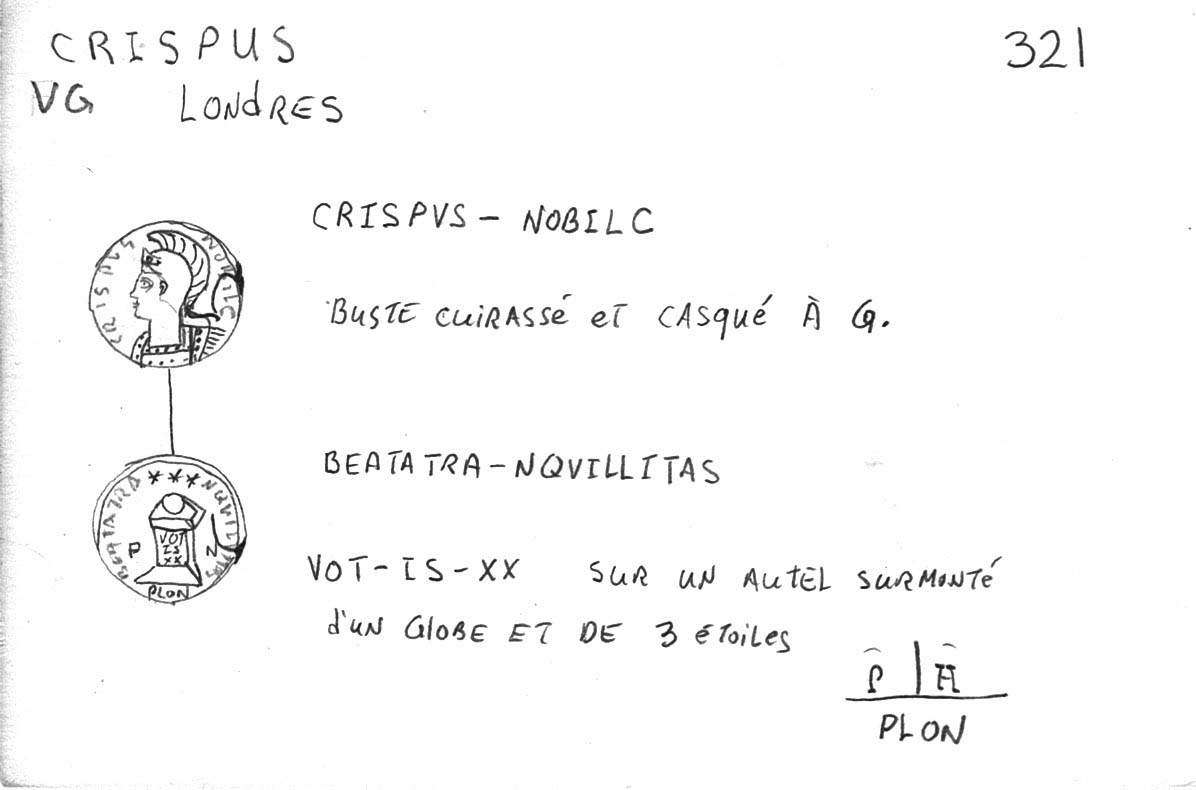 CRISPUS 321
VG LONdRES
CRISPVS - NOBILC
BUSTE CUIRASSé eT CASqué À G.
CRISPUS NOBILC
BEATATRA-NQVILLITAS
BEATATRA *** NQVILITAS
VOT-IS-XX SUR UN AUTEL SURMONTé
d'UN GlOBE ET DE 3 éToiLes
P VOT IS XX N
PLON
P | A
PLON